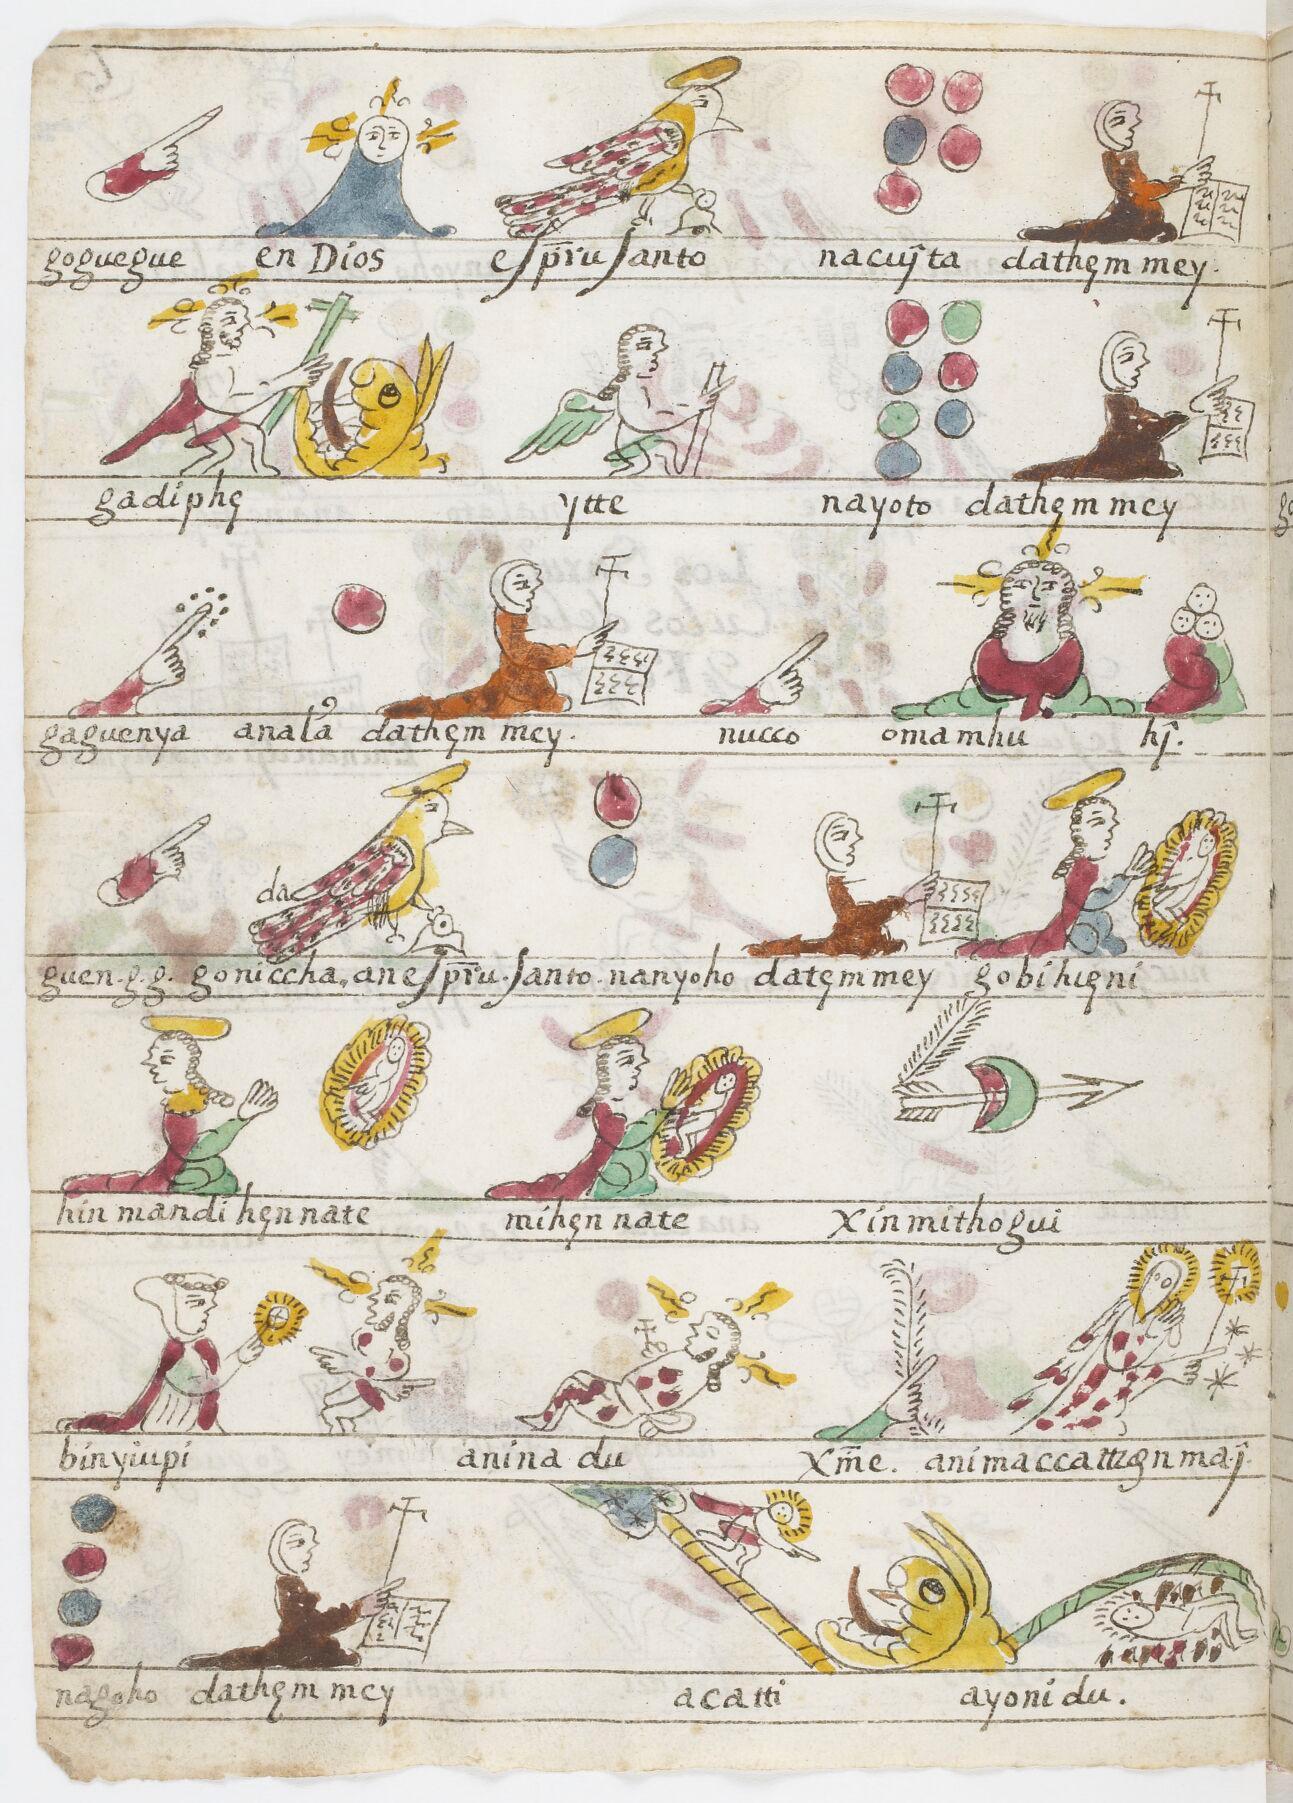 goguegue en Dios esp̄riu santo nacuȷ̃ta dathęm mey.
gadiphę ytte nayoto dathęm mey
gaguenya anala dathęm mey. nucco omamhu hȷ̃.
da
guen.g.g. goniccha, an esp̄riu.santo. nanyoho datęmmey gobihięni
hin mandi hęnnate mihęn nate Xinmithogui
binyiupi anina du Xm̄e. animaccattzęnmaȷ̃.
nagoho dathęm mey acatti ayoni du.